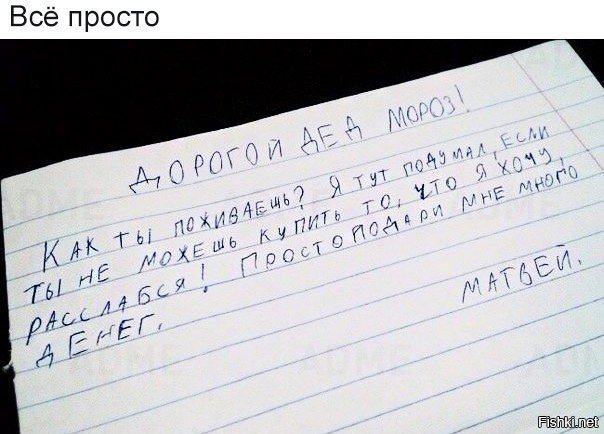 Всё просто
ДОРОГОЙ ДЕД МОРОЗ!
КАК ТЫ ПОЖИВАЕШЬ? Я ТУТ ПОДУМАЛ, ЕСЛИ
ТЫ НЕ МОЖЕШЬ КУПИТЬ ТО, ЧТО Я ХОЧУ,
РАССЛАБСЯ! ПРОСТО ПОДАРИ МНЕ МНОГО
ДЕНЕГ.
МАТВЕЙ.
ADME
ADME
Fishki.net